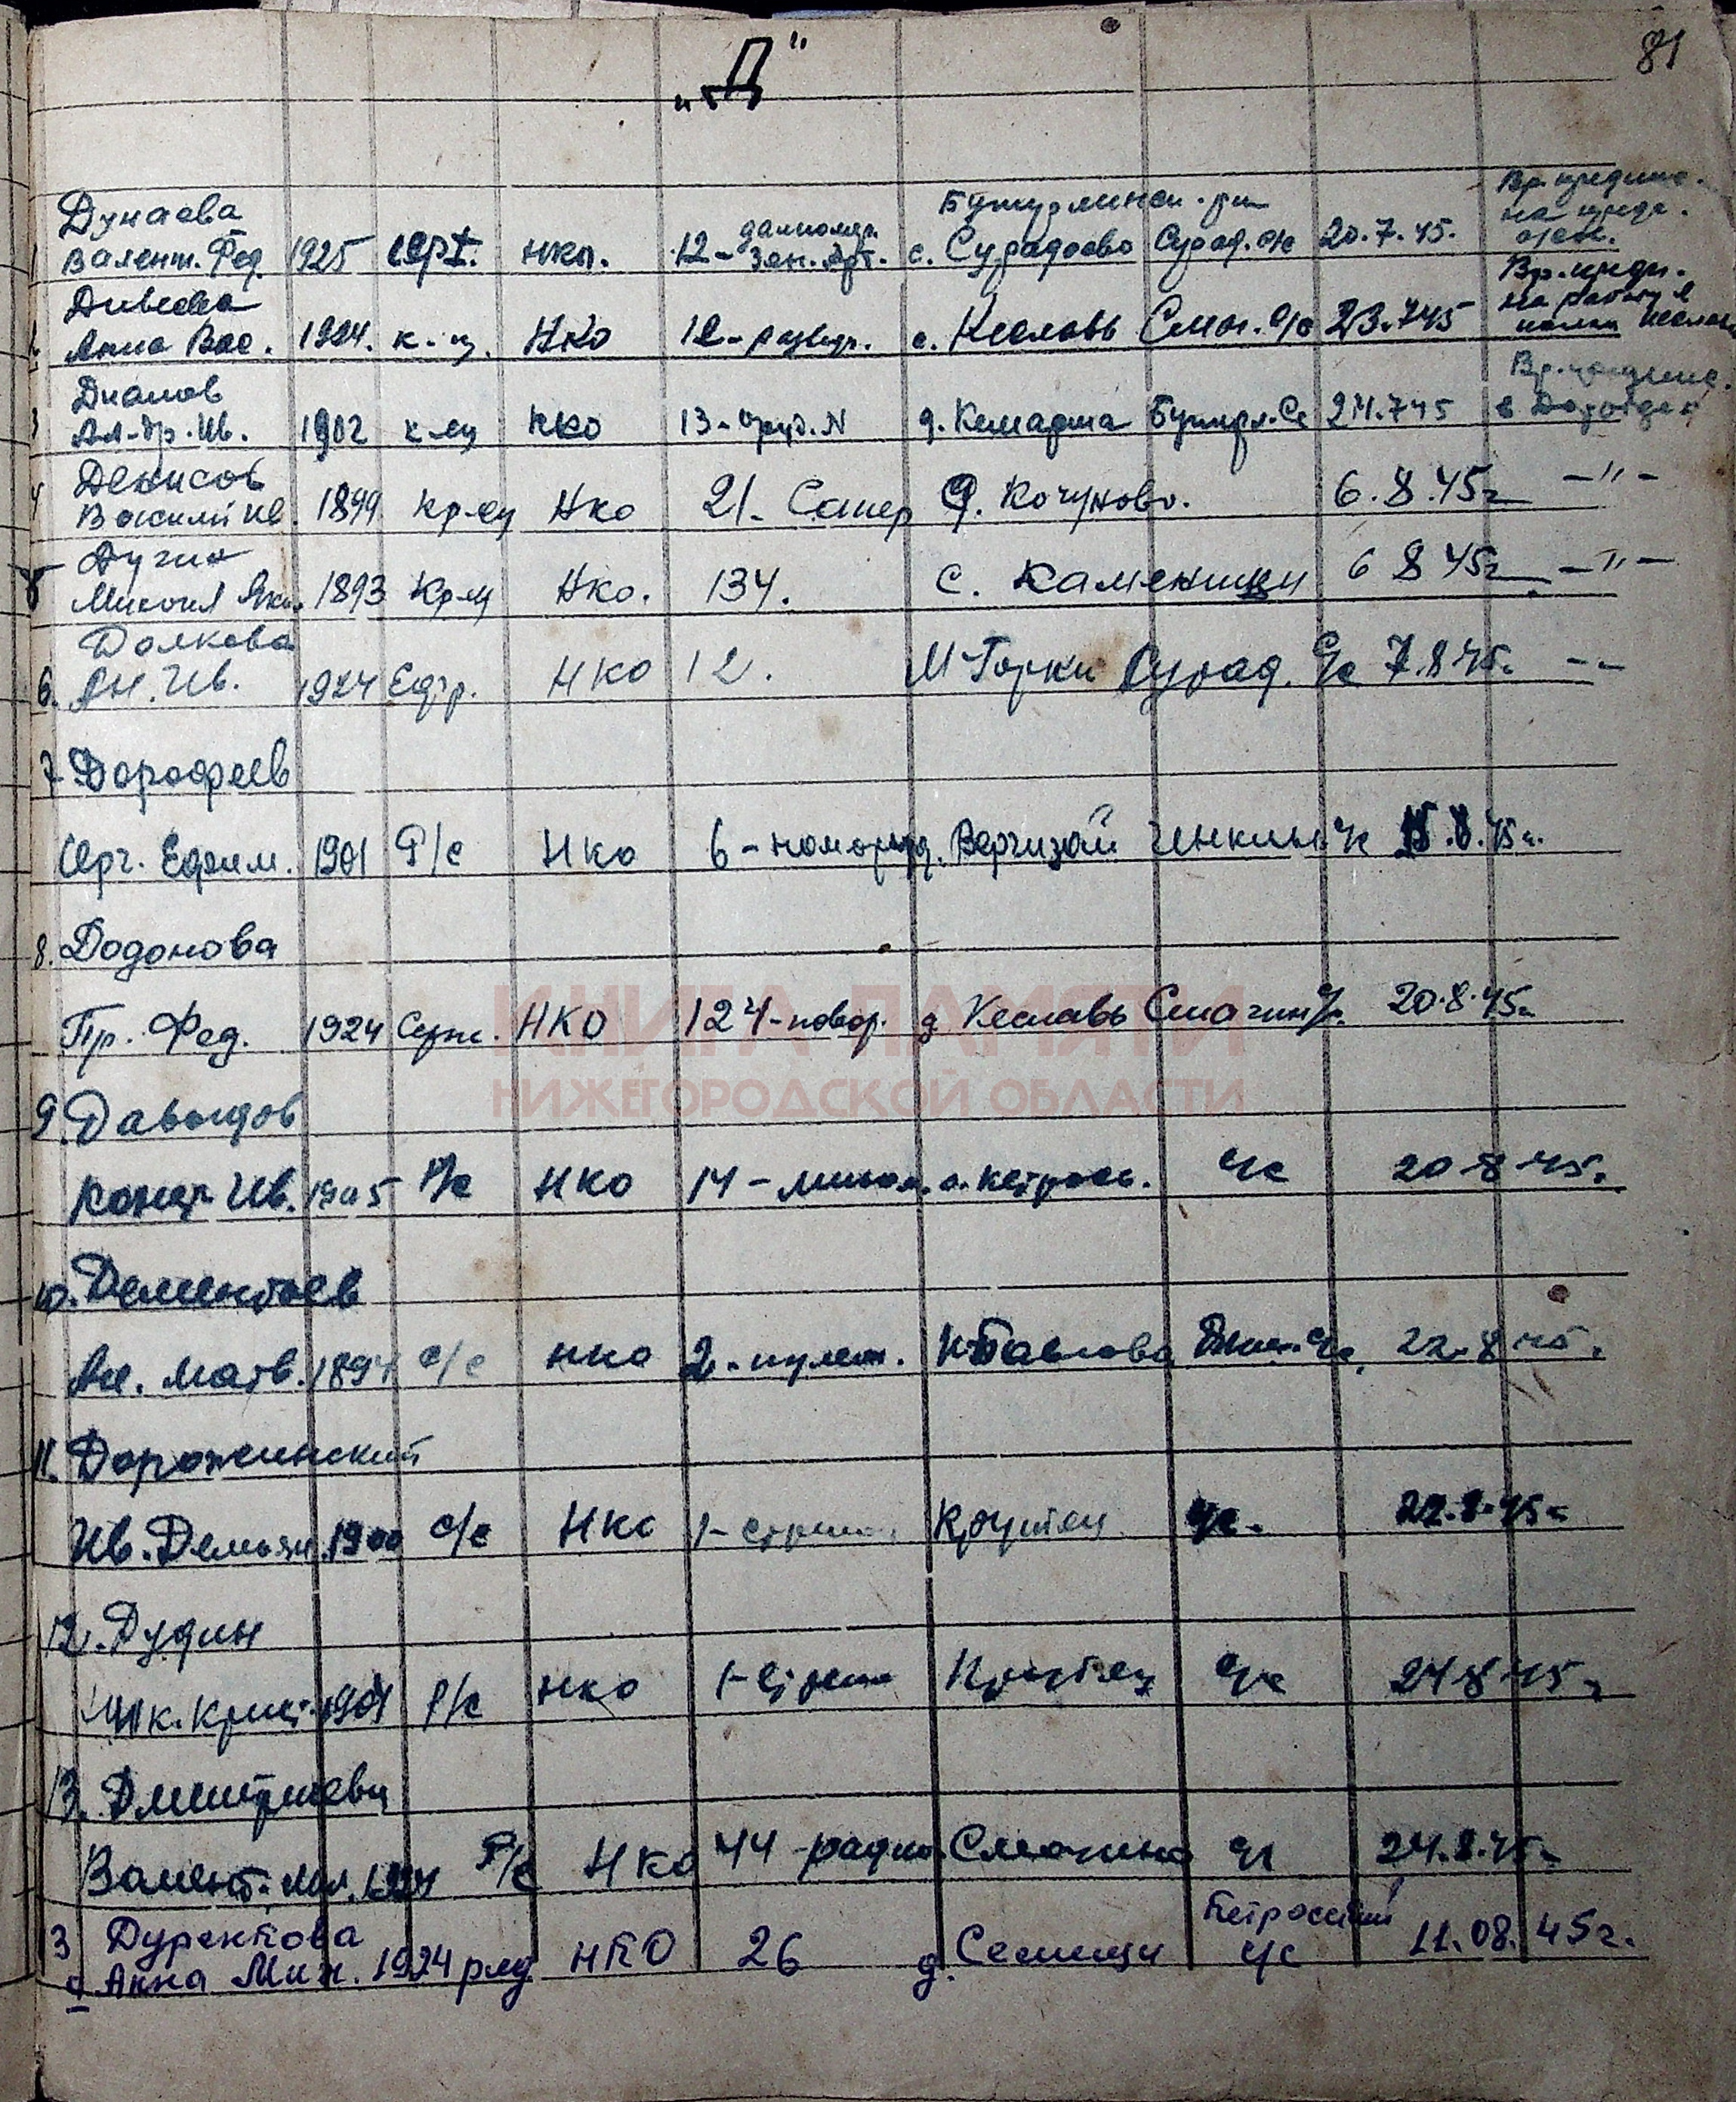 81
„Д"
Дунаева Бутурлинск. р-н
1 Валент. Фед. 1925 серж. нко. 12- дальномер. Зен. Арт. с. Сурадеево Сурад. с/с 20.7.45.
Дивеева
2 Анна Вас. 1924. к-ц. НКО 12-развед. с. Кеславь Смаг. с/с 23.7.45
Дианов
3 Ал-др. Ив. 1902 к-ец НКО 13-оруд. N д. Кемарша Бутурл. Сс 24.7.45
Денисов
4 Василий Ив. 1899 кр-ец НКО 21- Сапер д. Кочуново. 6.8.45г – " –
Дугин
5 Михаил Як. 1893 Кр-ец НКО. 134. с. Каменищи 6 8 45г – " –
Долкова
6. Ан. Ив. 1924 Ефр. НКО 12. М Горки Сурад. с/с 7.8.45г. – –
7 Дорофеев
Серг. Ефим. 1901 Р/с НКО 6- д. Вергизай Инкин. с/с 15.8.45г.
8. Додонова
Пр. Фед. 1924 Серж. НКО 124-повар. д Кеславь Смагин с/с. 20.8.45г.
9. Давыдов
Ив. 1905 Р/с НКО 14-мином. с. Кетрось. с/с 20 8 45.
10. Дементьев
Ал. Матв. 1894 с/с НКО 2-пулем. Павлова с/с. 22.8 45.
11. Дорожинский
Ив. Демьян. 1900 с/с НКО 1- Крутец с/с. 22.8.45г
12. Дудин
Мих. 1901 р/с НКО 1-стрел Крутец с/с 24 8 45г
13. Дмитриева
Валент. 1924 Р/с НКО 44-радио. Смагино с/с 24.8.45г
3 Дуректова Петросский
Анна Мих. 1924 ряд. НКО 26 д. Семещи с/с 11.08.45г.
КНИГА ПАМЯТИ
НИЖЕГОРОДСКОЙ ОБЛАСТИ